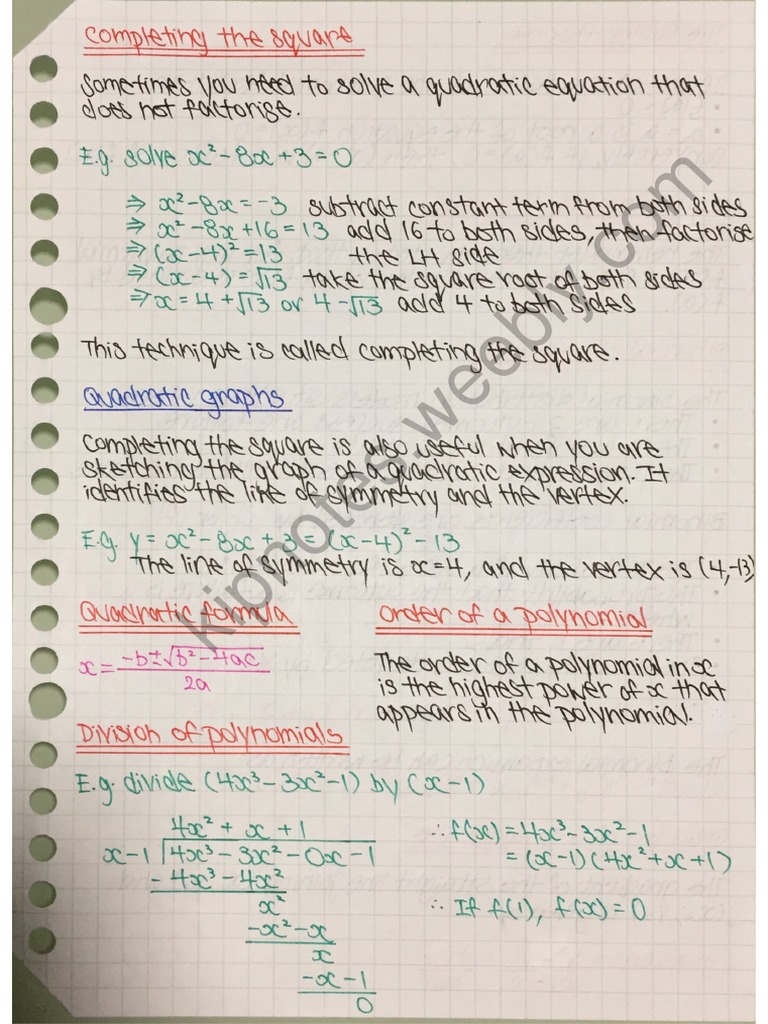 Completing the square
Sometimes you need to solve a quadratic equation that
does not factorise.
E.g. solve x² - 8x + 3 = 0
⇒ x² - 8x = -3 subtract constant term from both sides
⇒ x² - 8x + 16 = 13 add 16 to both sides, then factorise
⇒ (x-4)² = 13 the LH side
⇒ (x-4) = √13 take the square root of both sides
⇒ x = 4 + √13 or 4 - √13 add 4 to both sides
This technique is called completing the square.
Quadratic graphs
Completing the square is also useful when you are
sketching the graph of a quadratic expression. It
identifies the line of symmetry and the vertex.
E.g. y = x² - 8x + 3 = (x-4)² - 13
The line of symmetry is x=4, and the vertex is (4,-13)
Quadratic formula
x = -b ± √b² - 4ac
2a
Order of a polynomial
The order of a polynomial in x
is the highest power of x that
appears in the polynomial.
Division of polynomials
E.g. divide (4x³ - 3x² - 1) by (x-1)
4x² + x + 1
x-1 | 4x³ - 3x² - 0x - 1
- 4x³ - 4x²
x²
-x² - x
x
-x - 1
0
∴ f(x) = 4x³ - 3x² - 1
= (x-1)(4x² + x + 1)
∴ If f(1), f(x) = 0
kipnotes.weebly.com